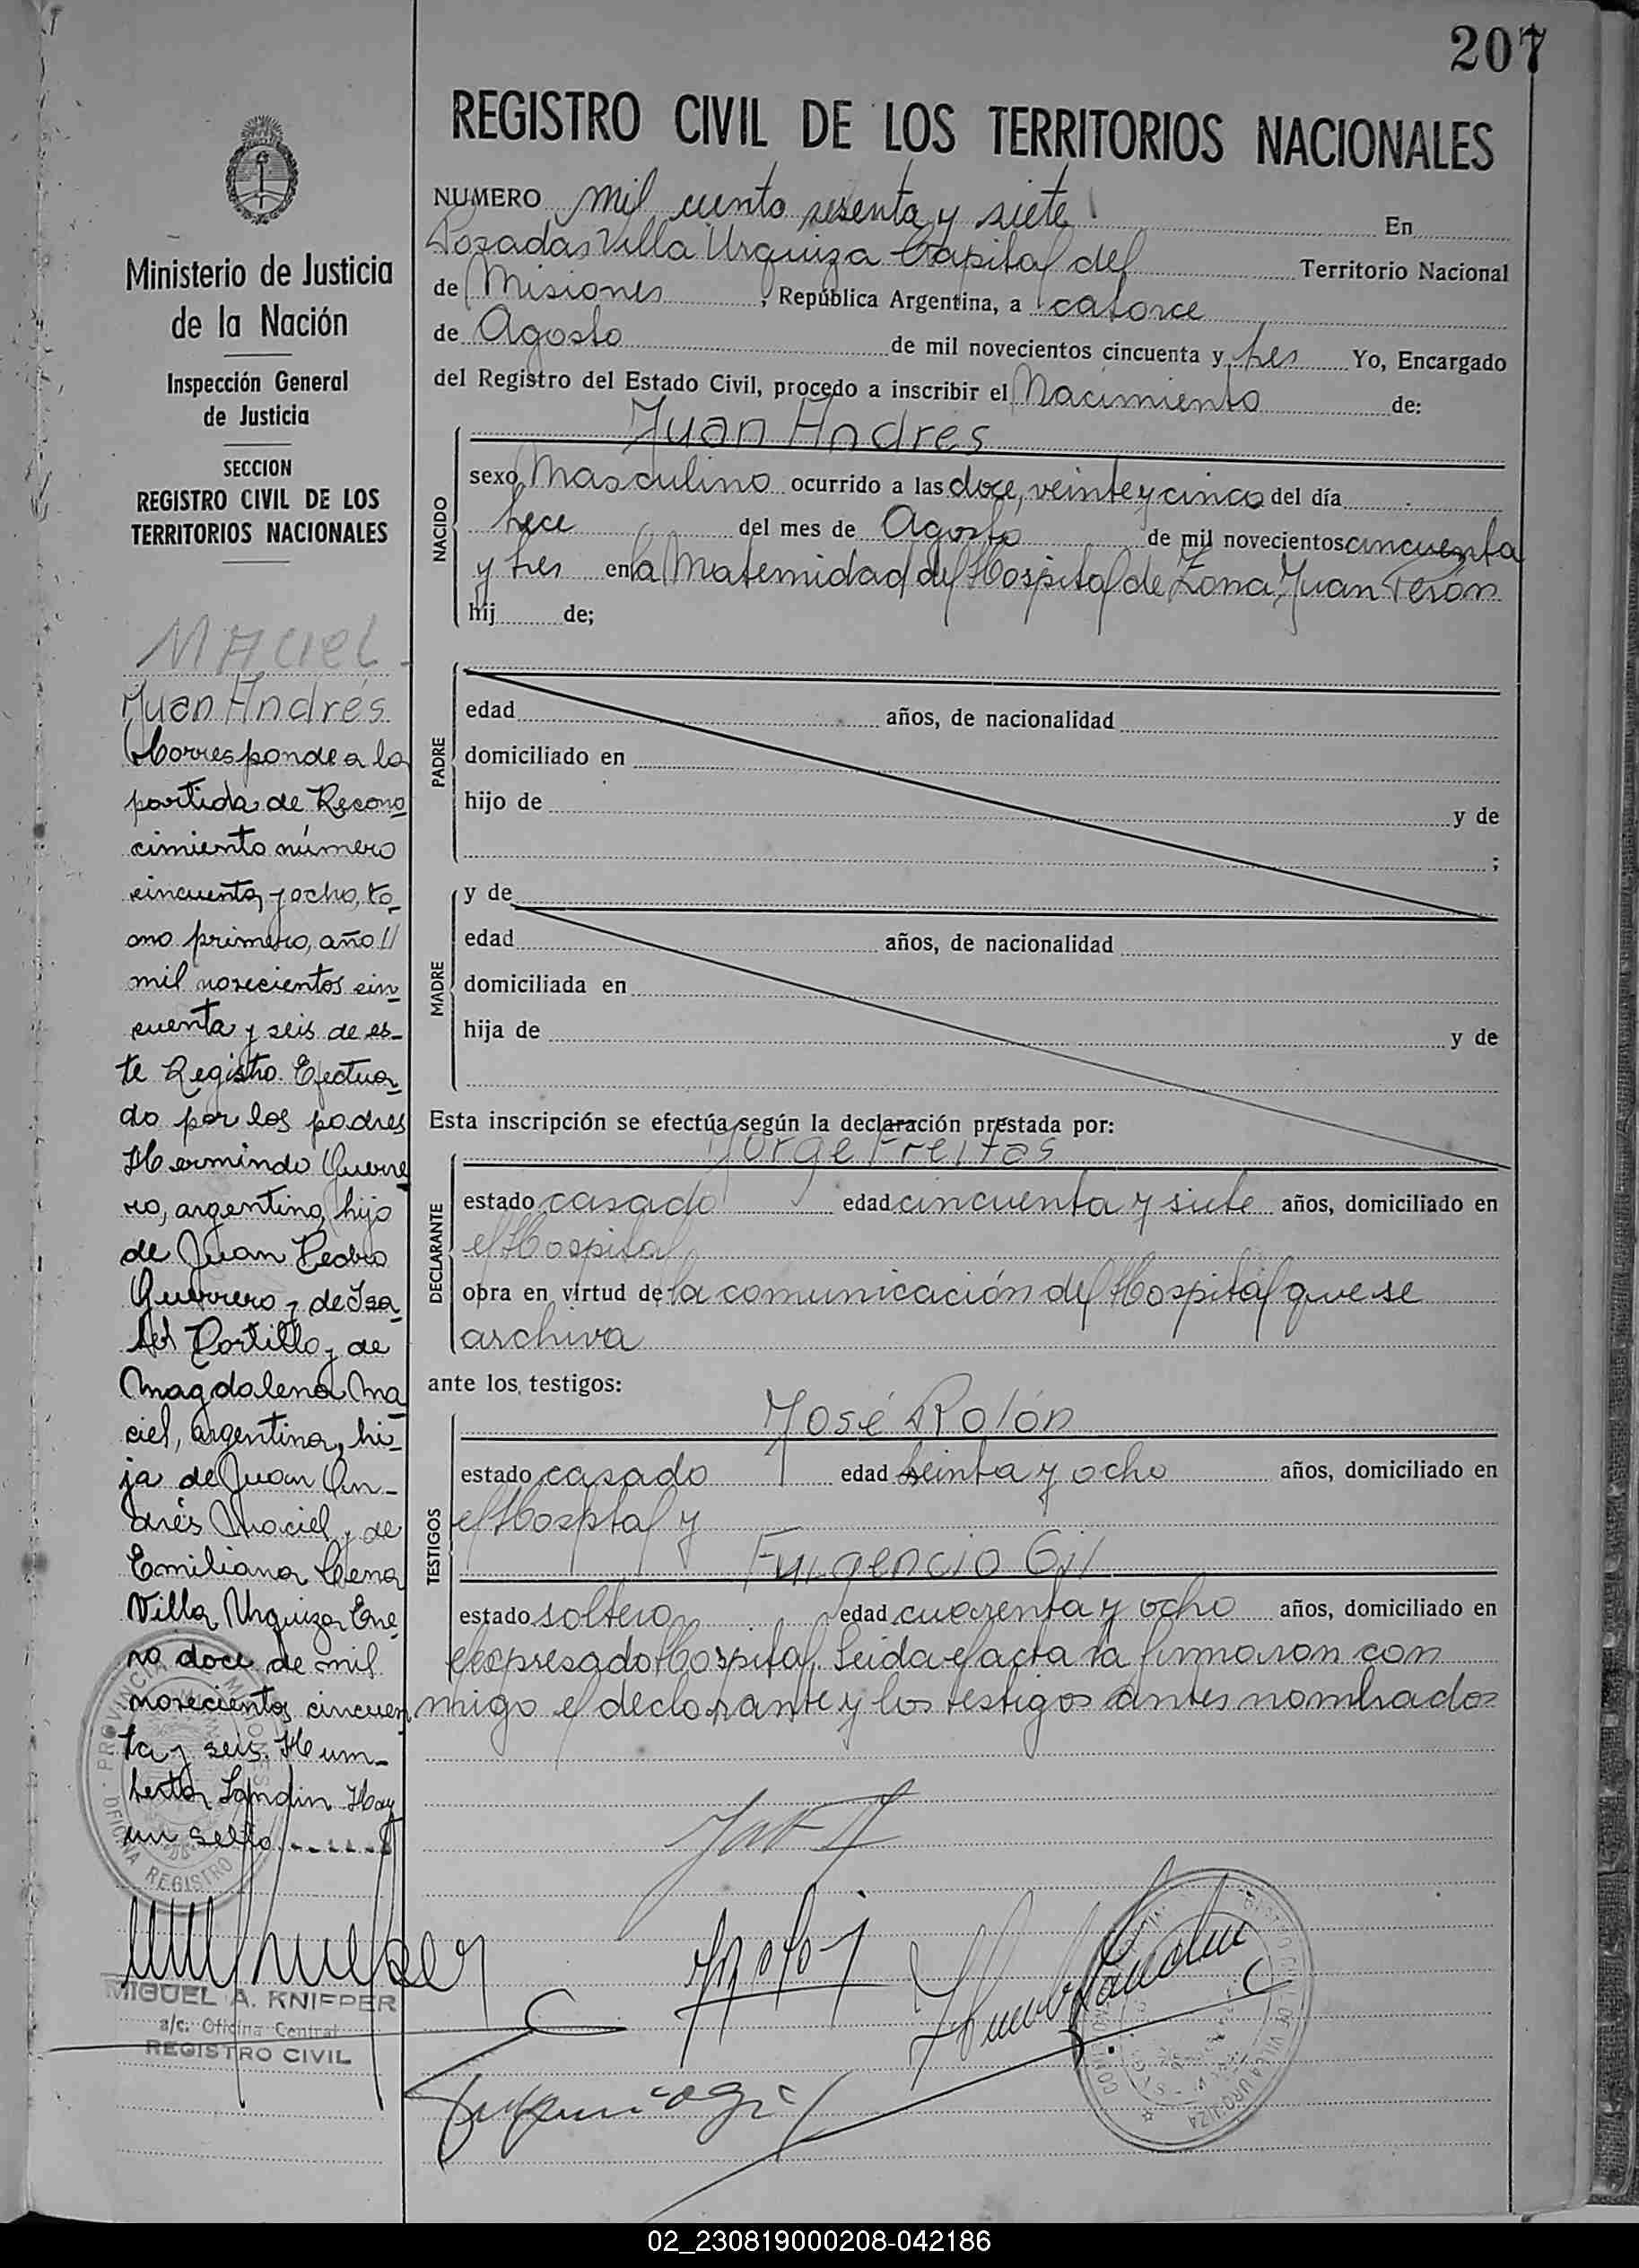 207
REGISTRO CIVIL DE LOS TERRITORIOS NACIONALES
NUMERO mil ciento sesenta y siete En
Posadas Villa Urquiza Capital del Territorio Nacional
de Misiones, República Argentina, a catorce
de Agosto de mil novecientos cincuenta y tres Yo, Encargado
del Registro del Estado Civil, procedo a inscribir el Nacimiento de:
Juan Andres
NACIDO
sexo Masculino ocurrido a las doce, veinte y cinco del día
trece del mes de Agosto de mil novecientos cincuenta
y tres en la Maternidad del Hospital de Zona Juan Perón
hij de;
PADRE
edad años, de nacionalidad
domiciliado en
hijo de y de
;
MADRE
y de
edad años, de nacionalidad
domiciliada en
hija de y de
Esta inscripción se efectúa según la declaración prestada por:
Jorge Freitas
DECLARANTE
estado casado edad cincuenta y siete años, domiciliado en
el Hospital
obra en virtud de la comunicación del Hospital que se
archiva
ante los testigos:
José Rolón
TESTIGOS
estado casado edad treinta y ocho años, domiciliado en
el Hosptal y
Fulgencio Gil
estado soltero edad cuarenta y ocho años, domiciliado en
el expresado Hospital. Leida el acta la firmaron con
migo el declarante y los testigos antes nombrados
Ministerio de Justicia
de la Nación
Inspección General
de Justicia
SECCION
REGISTRO CIVIL DE LOS
TERRITORIOS NACIONALES
Maciel
Juan Andrés
Corresponde a la
partida de Recono
cimiento número
cincuenta y ocho, to
mo primero, año
mil novecientos cin
cuenta y seis de es-
te Registro. Efectua
do por los padres
Hermindo Guerre
ro, argentino, hijo
de Juan Pedro
Guerrero y de Isa
bel Portillo y de
Magdalena Ma
ciel, argentina, hi-
ja de Juan An-
drés Maciel y de
Emiliana Cena
Villa Urquiza Ene
ro doce de mil
novecientos cincuen
ta y seis. Hum-
berto Landin Hay
un sello
PROVINCIA MISIONES
OFICINA REGISTRO
MIGUEL A. KNIEPER
a/c. Oficina Central
REGISTRO CIVIL
DE VILLA URQUIZA
02_230819000208-042186